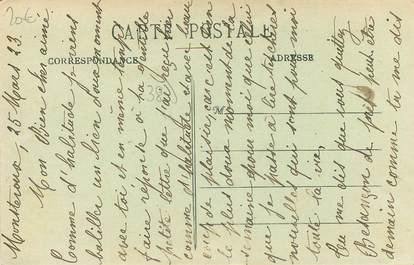 20€
CARTE POSTALE
CORRESPONDANCE
ADRESSE
M
Montbenoit, 25 Mars 23.
Mon Bien cher aimé.
Comme d'habitude je viens
babiller un bien doux moment
avec toi et en même temps
faire réponse à ta gentille
petite lettre que j'ai reçu
comme d'habitude et avec
de plaisir, car c'est
le plus doux moment de la
semaine pour moi que celui
que je passe à lire tes chères
nouvelles qui sont pour moi
toute la vie.
Tu me dis que vous quittez
Besançon de puis peut être
demain comme tu me dis